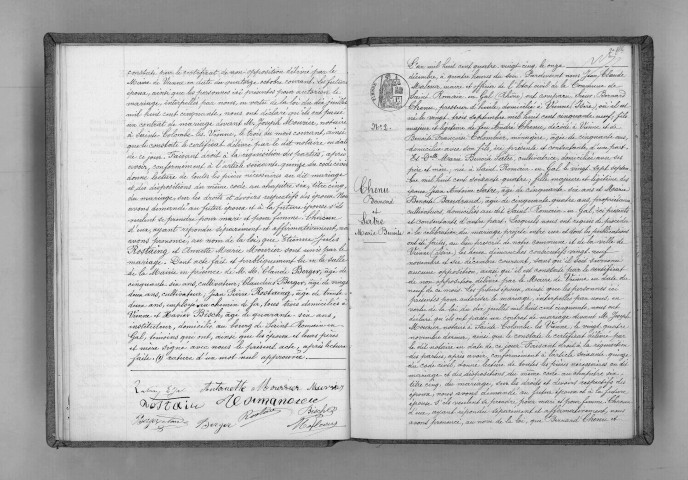 constate par le certificat de non-opposition délivré par le
Maire de Vienne en date du quatorze octobre courant. Les futurs
époux, ainsi que les personnes ici présentes pour autoriser le
mariage, interpellés par nous, en vertu de la loi du dix juillet
mil huit cent cinquante, nous ont déclaré qu'ils ont passé
un contrat de mariage devant Me Joseph Mourier, notaire
à Sainte-Colombe-lès-Vienne, le trois du mois courant, ainsi
que le constate le certificat délivré par le dit notaire, en date
de ce jour. Faisant droit à la réquisition des parties, après
avoir, conformément à l'article soixante-quinze du code civil,
donné lecture de toutes les pièces
et des dispositions du même code au chapitre six, titre cinq,
du mariage, sur les droits et devoirs respectifs des époux. Nous
avons demandé au futur époux et à la future épouse s'ils
veulent se prendre pour mari et pour femme. Chacun
d'eux, ayant répondu séparément et affirmativement, nous
avons prononcé, au nom de la loi, que Etienne Jules
Rostaing et Annette Marie Mourrier sont unis par le
mariage. Dont acte fait et publiquement lu en la salle
de la Mairie en présence de MM. Claude Berger, âgé de
cinquante-six ans, cultivateur, Claudius Berger, âgé de vingt
deux ans, cultivateur, Jean Pierre Rostaing, âgé de trente
deux ans, employé au chemin de fer, tous trois domiciliés à
Vienne et Xavier Bisch, âgé de quarante-six ans,
instituteur, domicilié au bourg de Saint-Romain-en-
Gal, témoins qui ont, ainsi que les époux et leurs pères
et mère signé avec nous le présent acte, après lecture
faite. rature d'un mot nul approuvée.
Antonette Mourrier
Rostain
Berger
Rostain
Bisch
Nº 2.
Chenu
Bernard
et
Sabre
Marie Benoîte
L'an mil huit cent quatre-vingt-cinq, le onze
décembre, à quatre heures du soir. Pardevant nous Jean Claude
maire et officier de l'état civil de la Commune de
Saint-Romain-en-Gal, Rhône, est comparu sieur Bernard
Chenu, presseur d'huile, domicilié à Vienne, Isère, où il est
né le vingt-trois septembre mil huit cent cinquante-neuf, fils
majeur et légitime de feu André Chenu, décédé à Vienne et de
ménagère, âgée de cinquante ans,
domiciliée avec son fils, ici présente et consentante, d'une part.
Et Dlle Marie Benoîte Sabre, cultivatrice, domiciliée avec ses
père et mère, née à Saint-Romain-en-Gal, le vingt-sept
mil huit cent soixante-quatre, fille majeure et légitime des
époux Jean Sabre, âgé de cinquante-six ans et Marie
Benoîte âgée de cinquante-quatre ans, propriétaires
cultivateurs, domiciliés au dit Saint-Romain-en-Gal, ici présents
et consentants, d'autre part. Lesquels nous ont requis de procéder
à la célébration du mariage projeté entre eux et dont les publications
ont été faites, au lieu prescrit de notre commune et de la ville de
Vienne (Isère), les deux dimanches consécutifs vingt-neuf
novembre et six décembre courant, sans qu'il soit survenu
aucune opposition, ainsi qu'il est constaté par le certificat
de non opposition délivré par le Maire de Vienne en date du
neuf de ce mois. Les futurs époux, ainsi que les personnes ici
présentes pour autoriser le mariage, interpellés par nous, en
vertu de la loi du dix juillet mil huit cent cinquante, nous ont
déclaré qu'ils ont passé un contrat de mariage devant Me Joseph
Mourier, notaire à Sainte-Colombe-lès-Vienne, le vingt-quatre
novembre dernier, ainsi que le constate le certificat délivré par
le dit notaire en date de ce jour. Faisant droit à la réquisition
des parties, après avoir, conformément à l'article soixante-quinze
du code civil, donné lecture de toutes les pièces
et des dispositions du même code au chapitre six,
titre cinq, du mariage, sur les droits et devoirs respectifs des
époux, nous avons demandé au futur époux et à la future
épouse, s'ils veulent se prendre pour mari et pour femme. Chacun
d'eux, ayant répondu séparément et affirmativement, nous
avons prononcé, au nom de la loi, que Bernard Chenu et